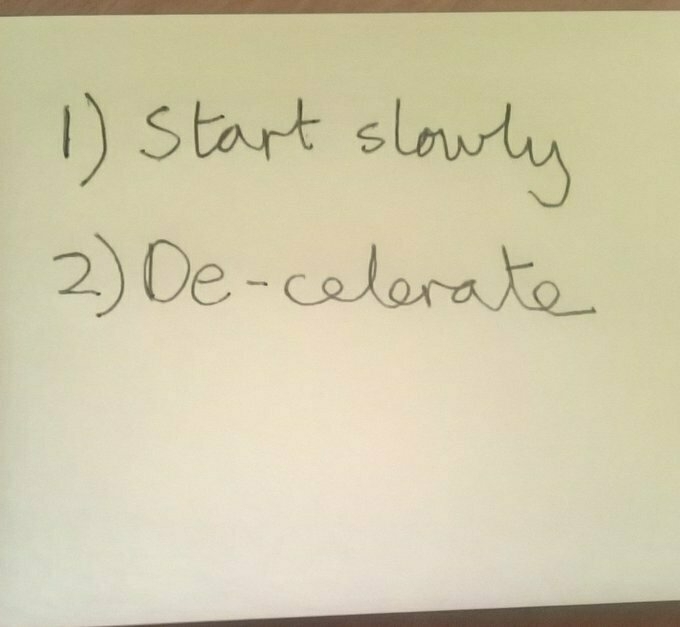 1) Start slowly
2) De-celerate